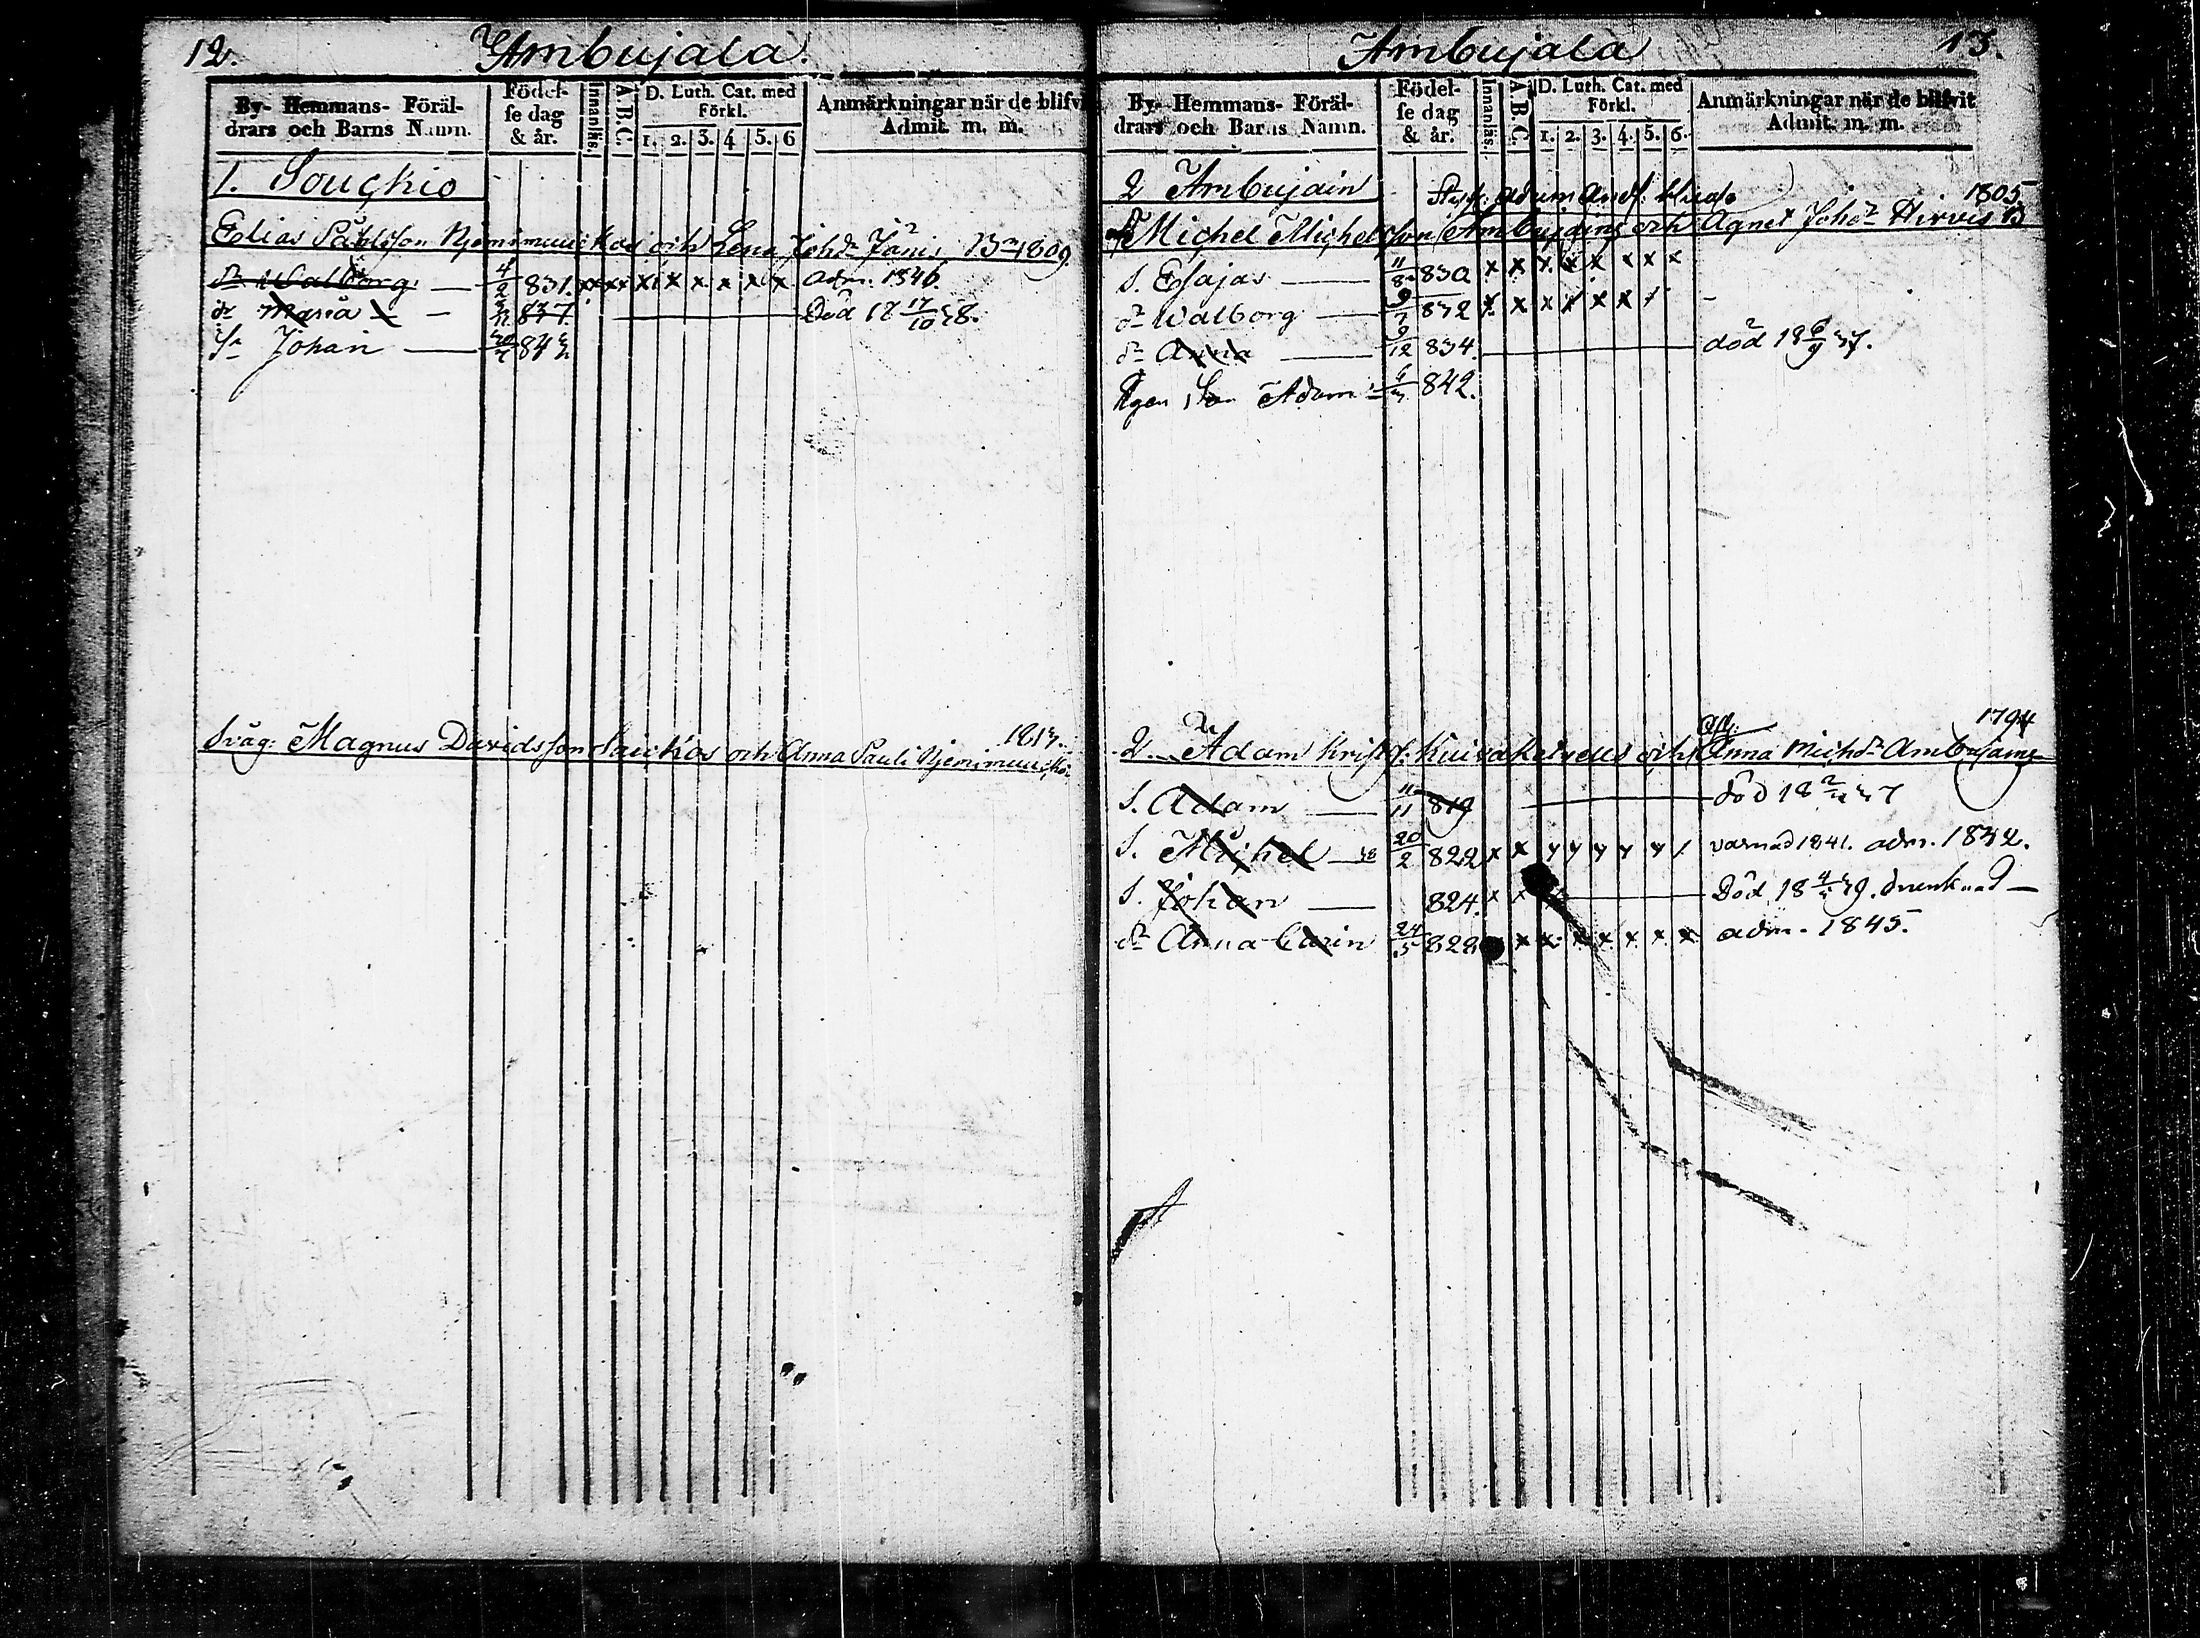 12.
Ambujala.
By- Hemmans- Föräl-
drars och Barns Namn.
Födel-
se dag
& år.
Innanläs.
A.B.C.
D. Luth. Cat. med
Förkl.
1. 2. 3. 4 5. 6
Anmärkningar när de blifvi
Admit. m. m.
1. Souckio
Elias Påhlsson och Lena Johdr Jänis 1809
dr Walborg — 4/2 831. x x x x x x x x adm. 1846.
dr Maria — 837. — Död 18 17/10 38.
Sn Johan — 842
1813.
Svåg: Magnus Davidsson Saukos och Anna Pauli
13.
Ambujala
By- Hemmans- Föräl-
drars och Barns Namn.
Födel-
se dag
& år.
Innanläs.
A.B.C.
D. Luth. Cat. med
Förkl.
1. 2. 3. 4. 5. 6.
Anmärkningar när de blifvit
Admit. m. m.
2 Ambujain
Adam And:
1805
Michel Michelsson Ambujains och Agnet Johdr Hirvis
S. Esajas — 11/8 830 x x x x x x x x
dr Walborg — 9/7 832 x x x x x x x
dr Anna — 9/12 834. — död 18 6/9 37.
Son Adam 842.
1794
2. Adam Krist: och Anna Michdr Ambujains
S. Adam — 11/11 819 — död 18 37
S. Michel — 20/2 822 x x x x x x x varnad 1841. adm. 1842.
S. Johan — 824. x x — Död 18 39. drunknad —
dr Anna Carin 24/5 828 x x x x x x x adm. 1845.